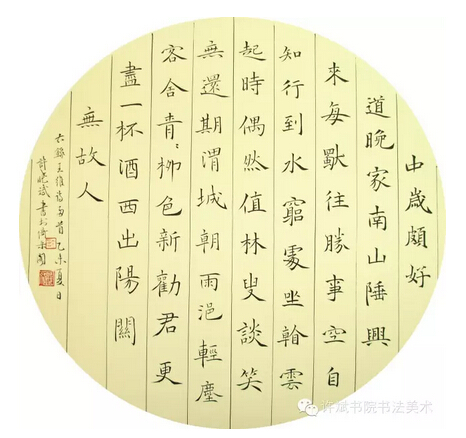 中歲頗好
道晚家南山陲興
來每獨往勝事空自
知行到水窮處坐看雲
起時偶然值林叟談笑
無還期渭城朝雨浥輕塵
客舍青〻柳色新勸君更
盡一杯酒西出陽關
無故人
右錄王維詩兩首乙未夏日
許斌書於
许斌书院书法美术